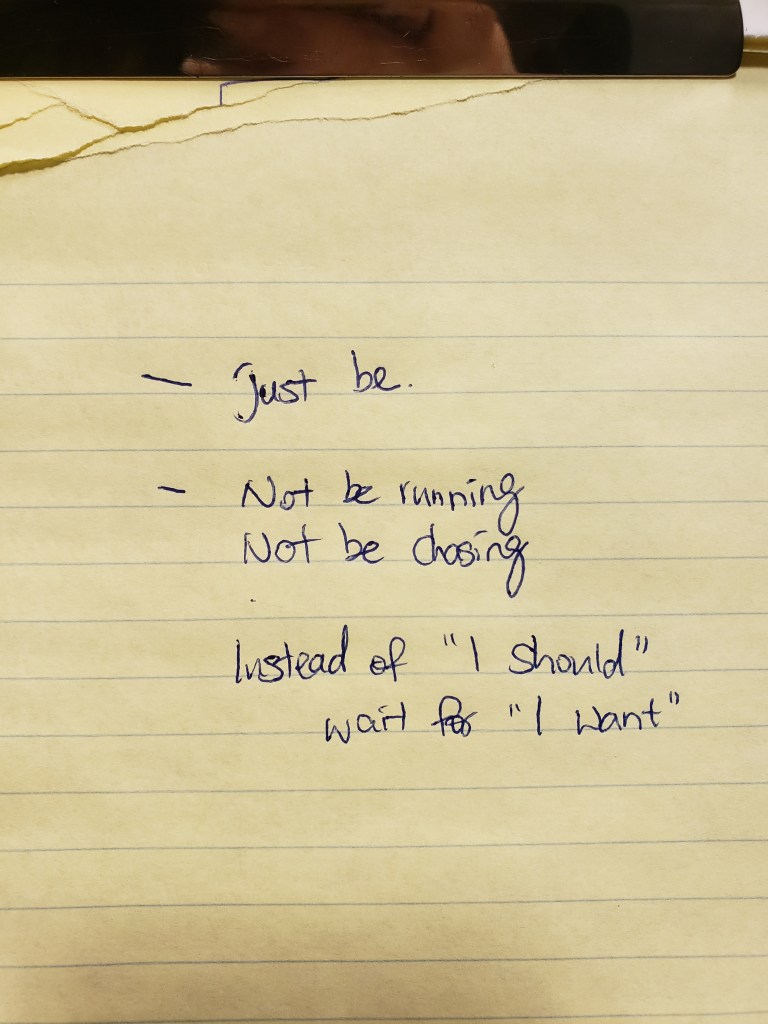 — Just be.
- Not be running
Not be chasing
Instead of "I should"
wait for "I want"